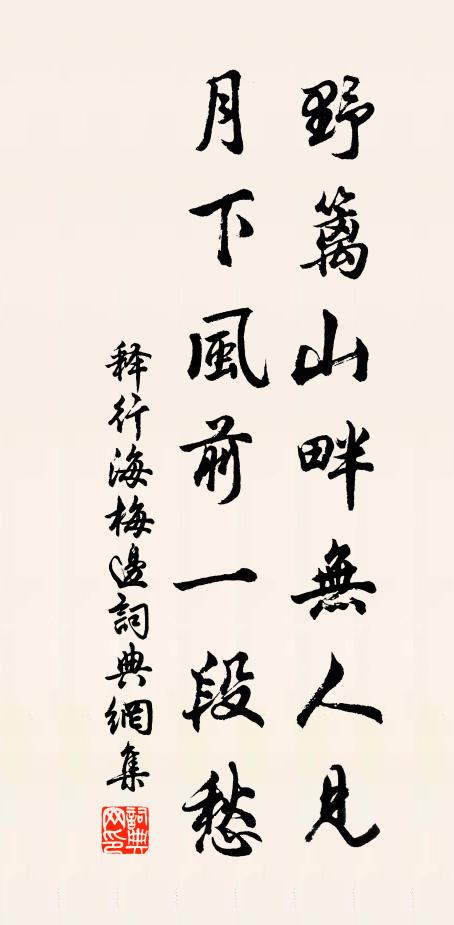 野籬山畔無人見
月下風前一段愁
释行海梅邊詞典網集
詞典網印